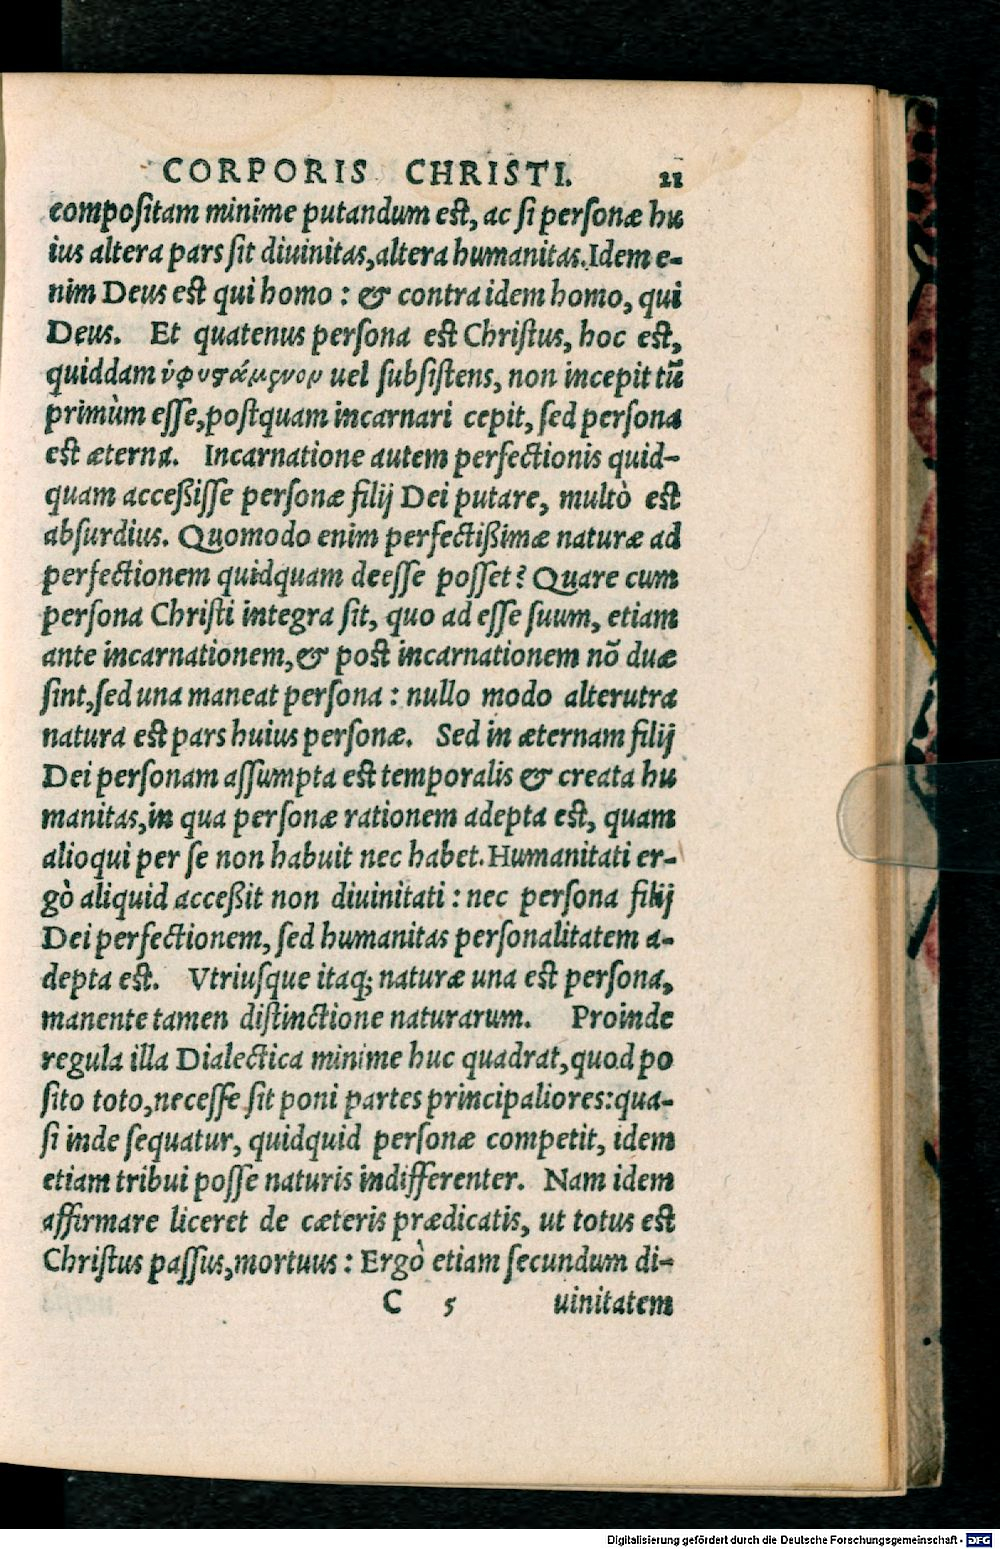 CORPORIS CHRISTI. 21
compositam minime putandum est, ac si personæ hu
ius altera pars sit diuinitas, altera humanitas. Idem e-
nim Deus est qui homo: & contra idem homo, qui
Deus. Et quatenus persona est Christus, hoc est,
quiddam ὑφυστάμενον uel subsistens, non incepit tū
primùm esse, postquam incarnari cepit, sed persona
est æterna. Incarnatione autem perfectionis quid-
quam acceßisse personæ filij Dei putare, multò est
absurdius. Quomodo enim perfectißimæ naturæ ad
perfectionem quidquam deesse posset? Quare cum
persona Christi integra sit, quo ad esse suum, etiam
ante incarnationem, & post incarnationem nō duæ
sint, sed una maneat persona: nullo modo alterutra
natura est pars huius personæ. Sed in æternam filij
Dei personam assumpta est temporalis & creata hu
manitas, in qua personæ rationem adepta est, quam
alioqui per se non habuit nec habet. Humanitati er-
gò aliquid acceßit non diuinitati: nec persona filij
Dei perfectionem, sed humanitas personalitatem a-
depta est. Vtriusque itaq; naturæ una est persona,
manente tamen distinctione naturarum. Proinde
regula illa Dialectica minime huc quadrat, quod po
sito toto, necesse sit poni partes principaliores: qua-
si inde sequatur, quidquid personæ competit, idem
etiam tribui posse naturis indifferenter. Nam idem
affirmare liceret de cæteris prædicatis, ut totus est
Christus passus, mortuus: Ergò etiam secundum di-
C 5 uinitatem
Digitalisierung gefördert durch die Deutsche Forschungsgemeinschaft - DFG